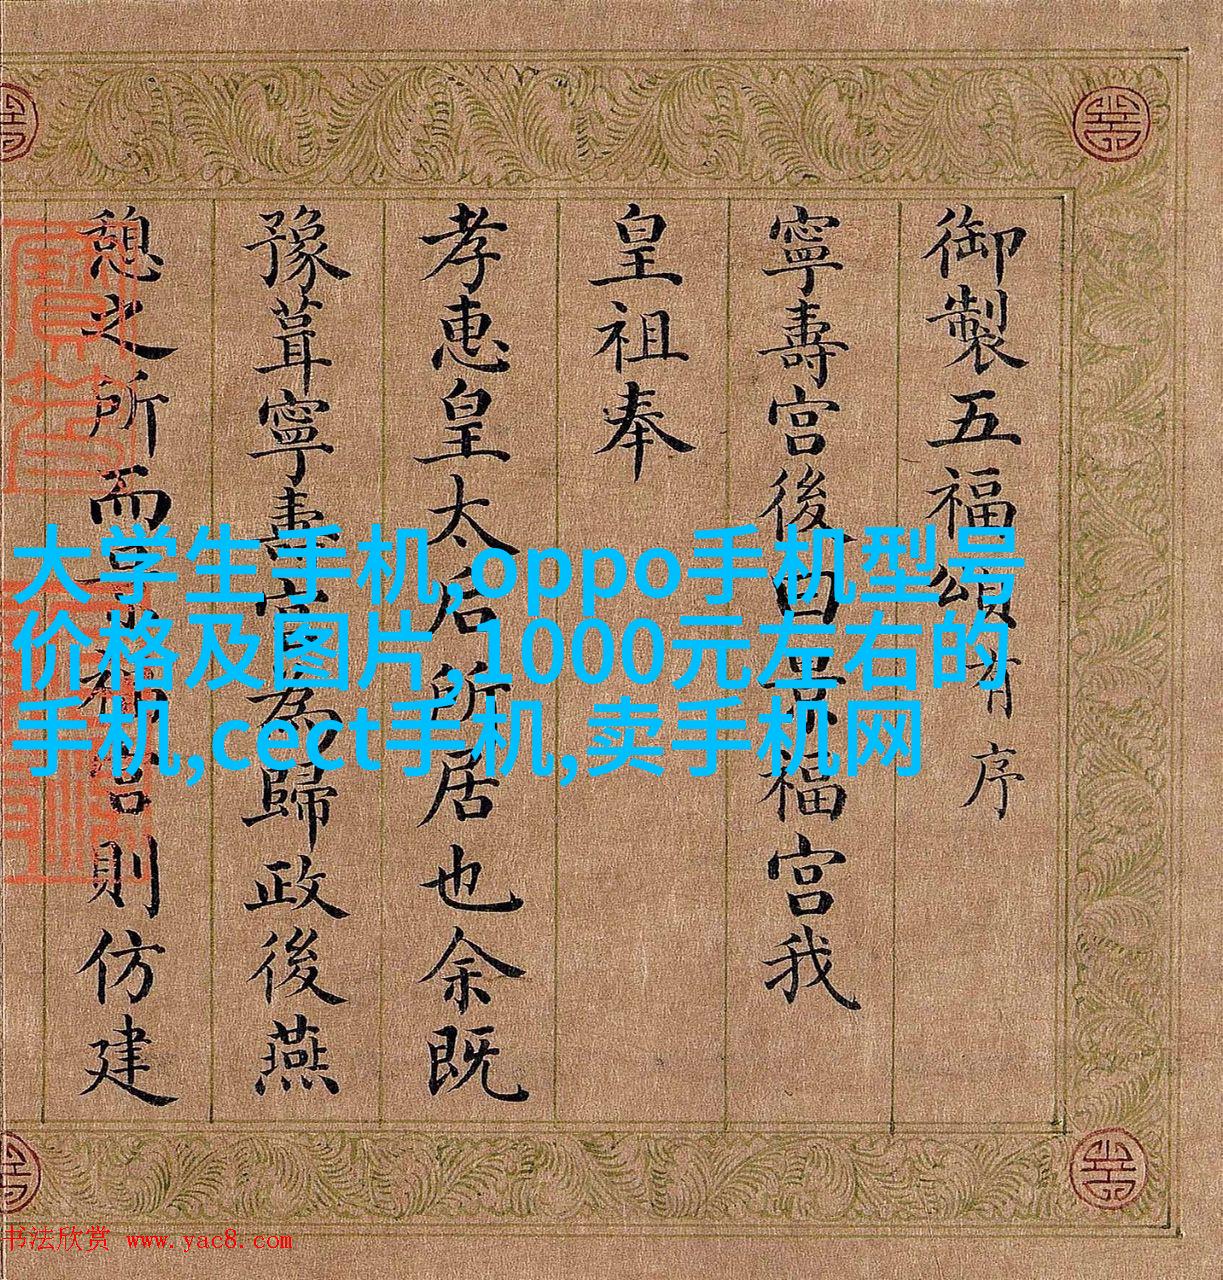 御製五福頌有序
寧壽宮後曰景福宮我
皇祖奉
孝惠皇太后所居也余既
豫葺寧壽宮為歸政後燕
憩之所而景福宮則仿建
大学生手机,oppo手机型号
价格及图片,1000元左右的
手机,cect手机,卖手机网
书法欣赏 www.yac8.com